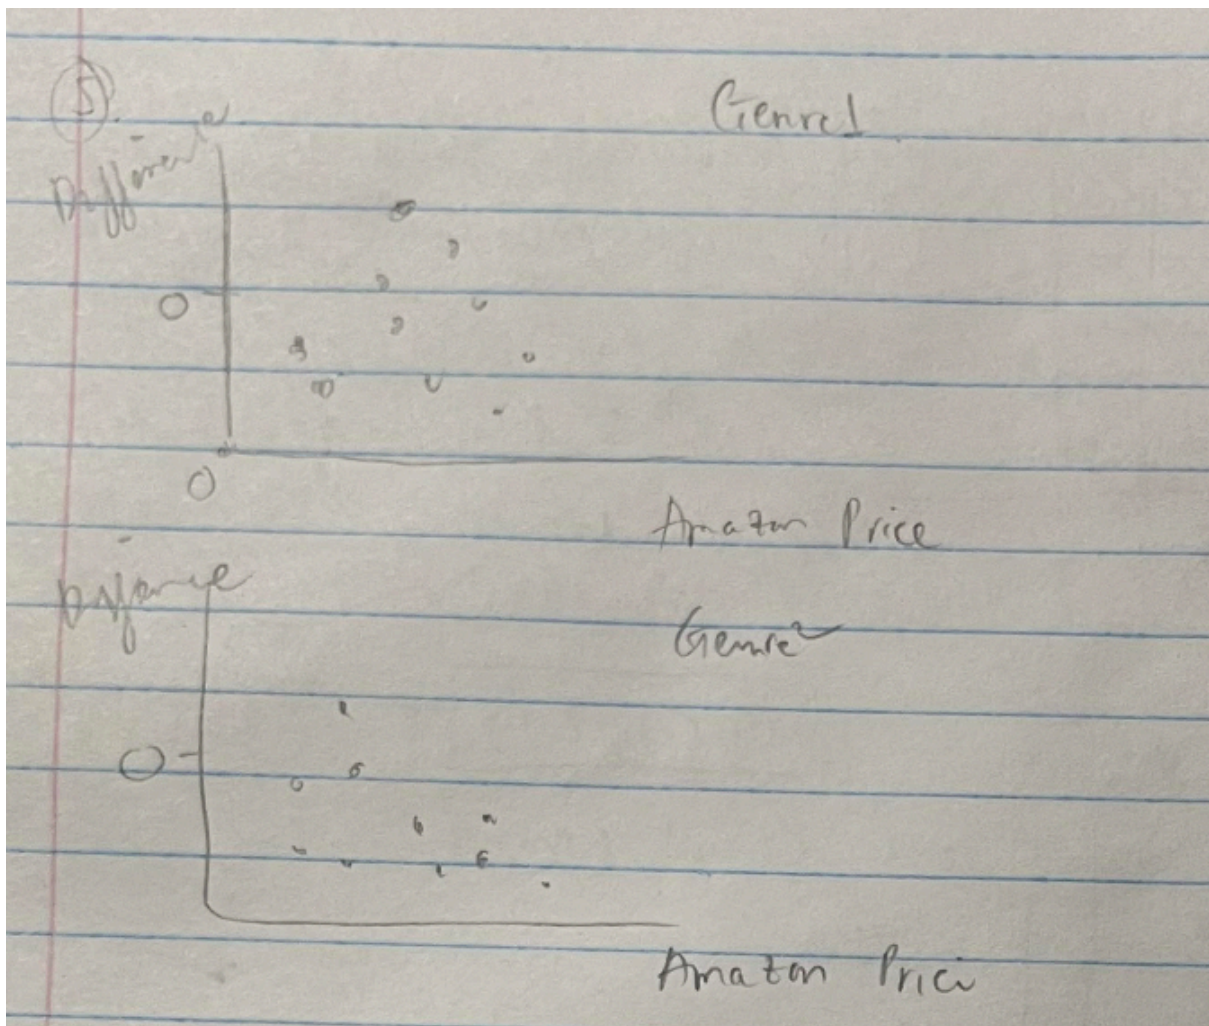 5.
Genre1
Difference
0
0
Amazon Price
Genre2
0
Amazon Price